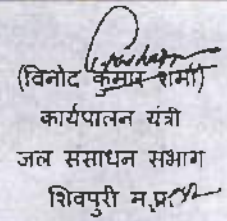 (विनोद कुमार शर्मा)
कार्यपालन यंत्री
जल ससाधन सभाग
शिवपुरी म.प्र.